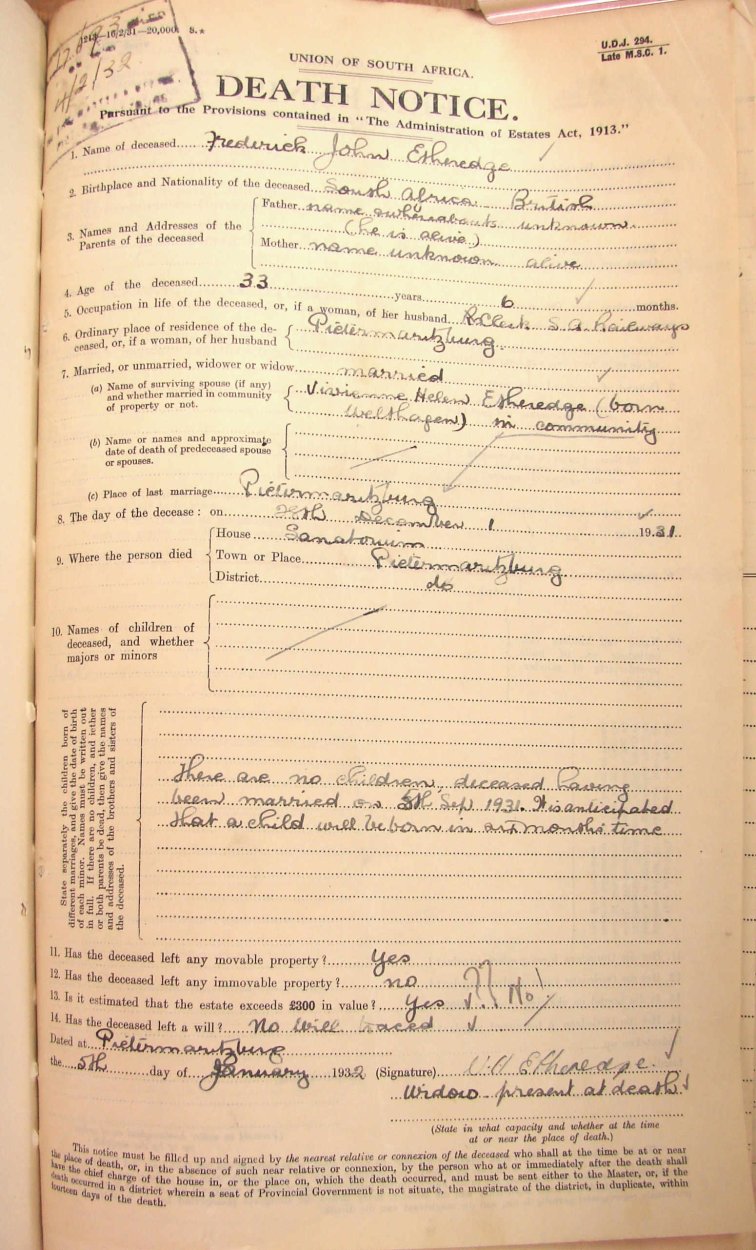 1213—16/2/31—20,000. S.*
U.D.J. 294.
Late M.S.C. 1.
4/2/32
UNION OF SOUTH AFRICA.
DEATH NOTICE.
Pursuant to the Provisions contained in "The Administration of Estates Act, 1913."
1. Name of deceased Frederick John Etheredge
2. Birthplace and Nationality of the deceased South Africa British
3. Names and Addresses of the Parents of the deceased
Father name & whereabouts unknown.
(he is alive)
Mother name unknown alive
4. Age of the deceased 33 years 6 months.
5. Occupation in life of the deceased, or, if a woman, of her husband R. Clerk S.A. Railways
6. Ordinary place of residence of the de-
ceased, or, if a woman, of her husband
Pietermaritzburg
7. Married, or unmarried, widower or widow married
(a) Name of surviving spouse (if any)
and whether married in community
of property or not.
Vivienne Helen Etheredge (born
Welthagen) in community
(b) Name or names and approximate
date of death of predeceased spouse
or spouses.
(c) Place of last marriage Pietermaritzburg
8. The day of the decease: on December 1931
9. Where the person died
House Sanatorium
Town or Place Pietermaritzburg
District do
10. Names of children of
deceased, and whether
majors or minors
State separately the children born of
different marriages, and give the date of birth
of each minor. Names must be written out
in full. If there are no children, and iether
or both parents be dead, then give the names
and addresses of the brothers and sisters of
the deceased.
There are no children deceased having
been married on 5th Sep 1931. It is anticipated
that a child will be born in months time
11. Has the deceased left any movable property? Yes
12. Has the deceased left any immovable property? no
13. Is it estimated that the estate exceeds £300 in value? Yes ?? No!
14. Has the deceased left a will? No Will traced
Dated at Pietermaritzburg
the 5th day of January 1932 (Signature) V H Etheredge.
Widow present at death
(State in what capacity and whether at the time
at or near the place of death.)
This notice must be filled up and signed by the nearest relative or connexion of the deceased who shall at the time be at or near
the place of death, or, in the absence of such near relative or connexion, by the person who at or immediately after the death shall
have the chief charge of the house in, or the place on, which the death occurred, and must be sent either to the Master, or, if the
death occurred in a district wherein a seat of Provincial Government is not situate, the magistrate of the district, in duplicate, within
fourteen days of the death.